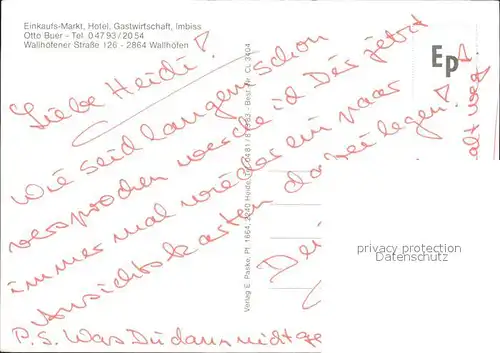 Einkaufs-Markt, Hotel, Gastwirtschaft, Imbiss
Otto Buer - Tel. 0 47 93 / 20 54
Wallhöfener Straße 126 - 2864 Wallhöfen
Liebe Heidi!
Wie seid langem schon
versprochen werde id Dir jetzt
immer mal wieder ein paar
Ansichtskarten dazu legen!
Dei
P.S. Was Du dann nicht ge
alt weg!
Verlag E. Paske, Pf. 1864, 2240 Heide Tel. 0481/
Best.-Nr. CL 3404
EP
privacy protection
Datenschutz